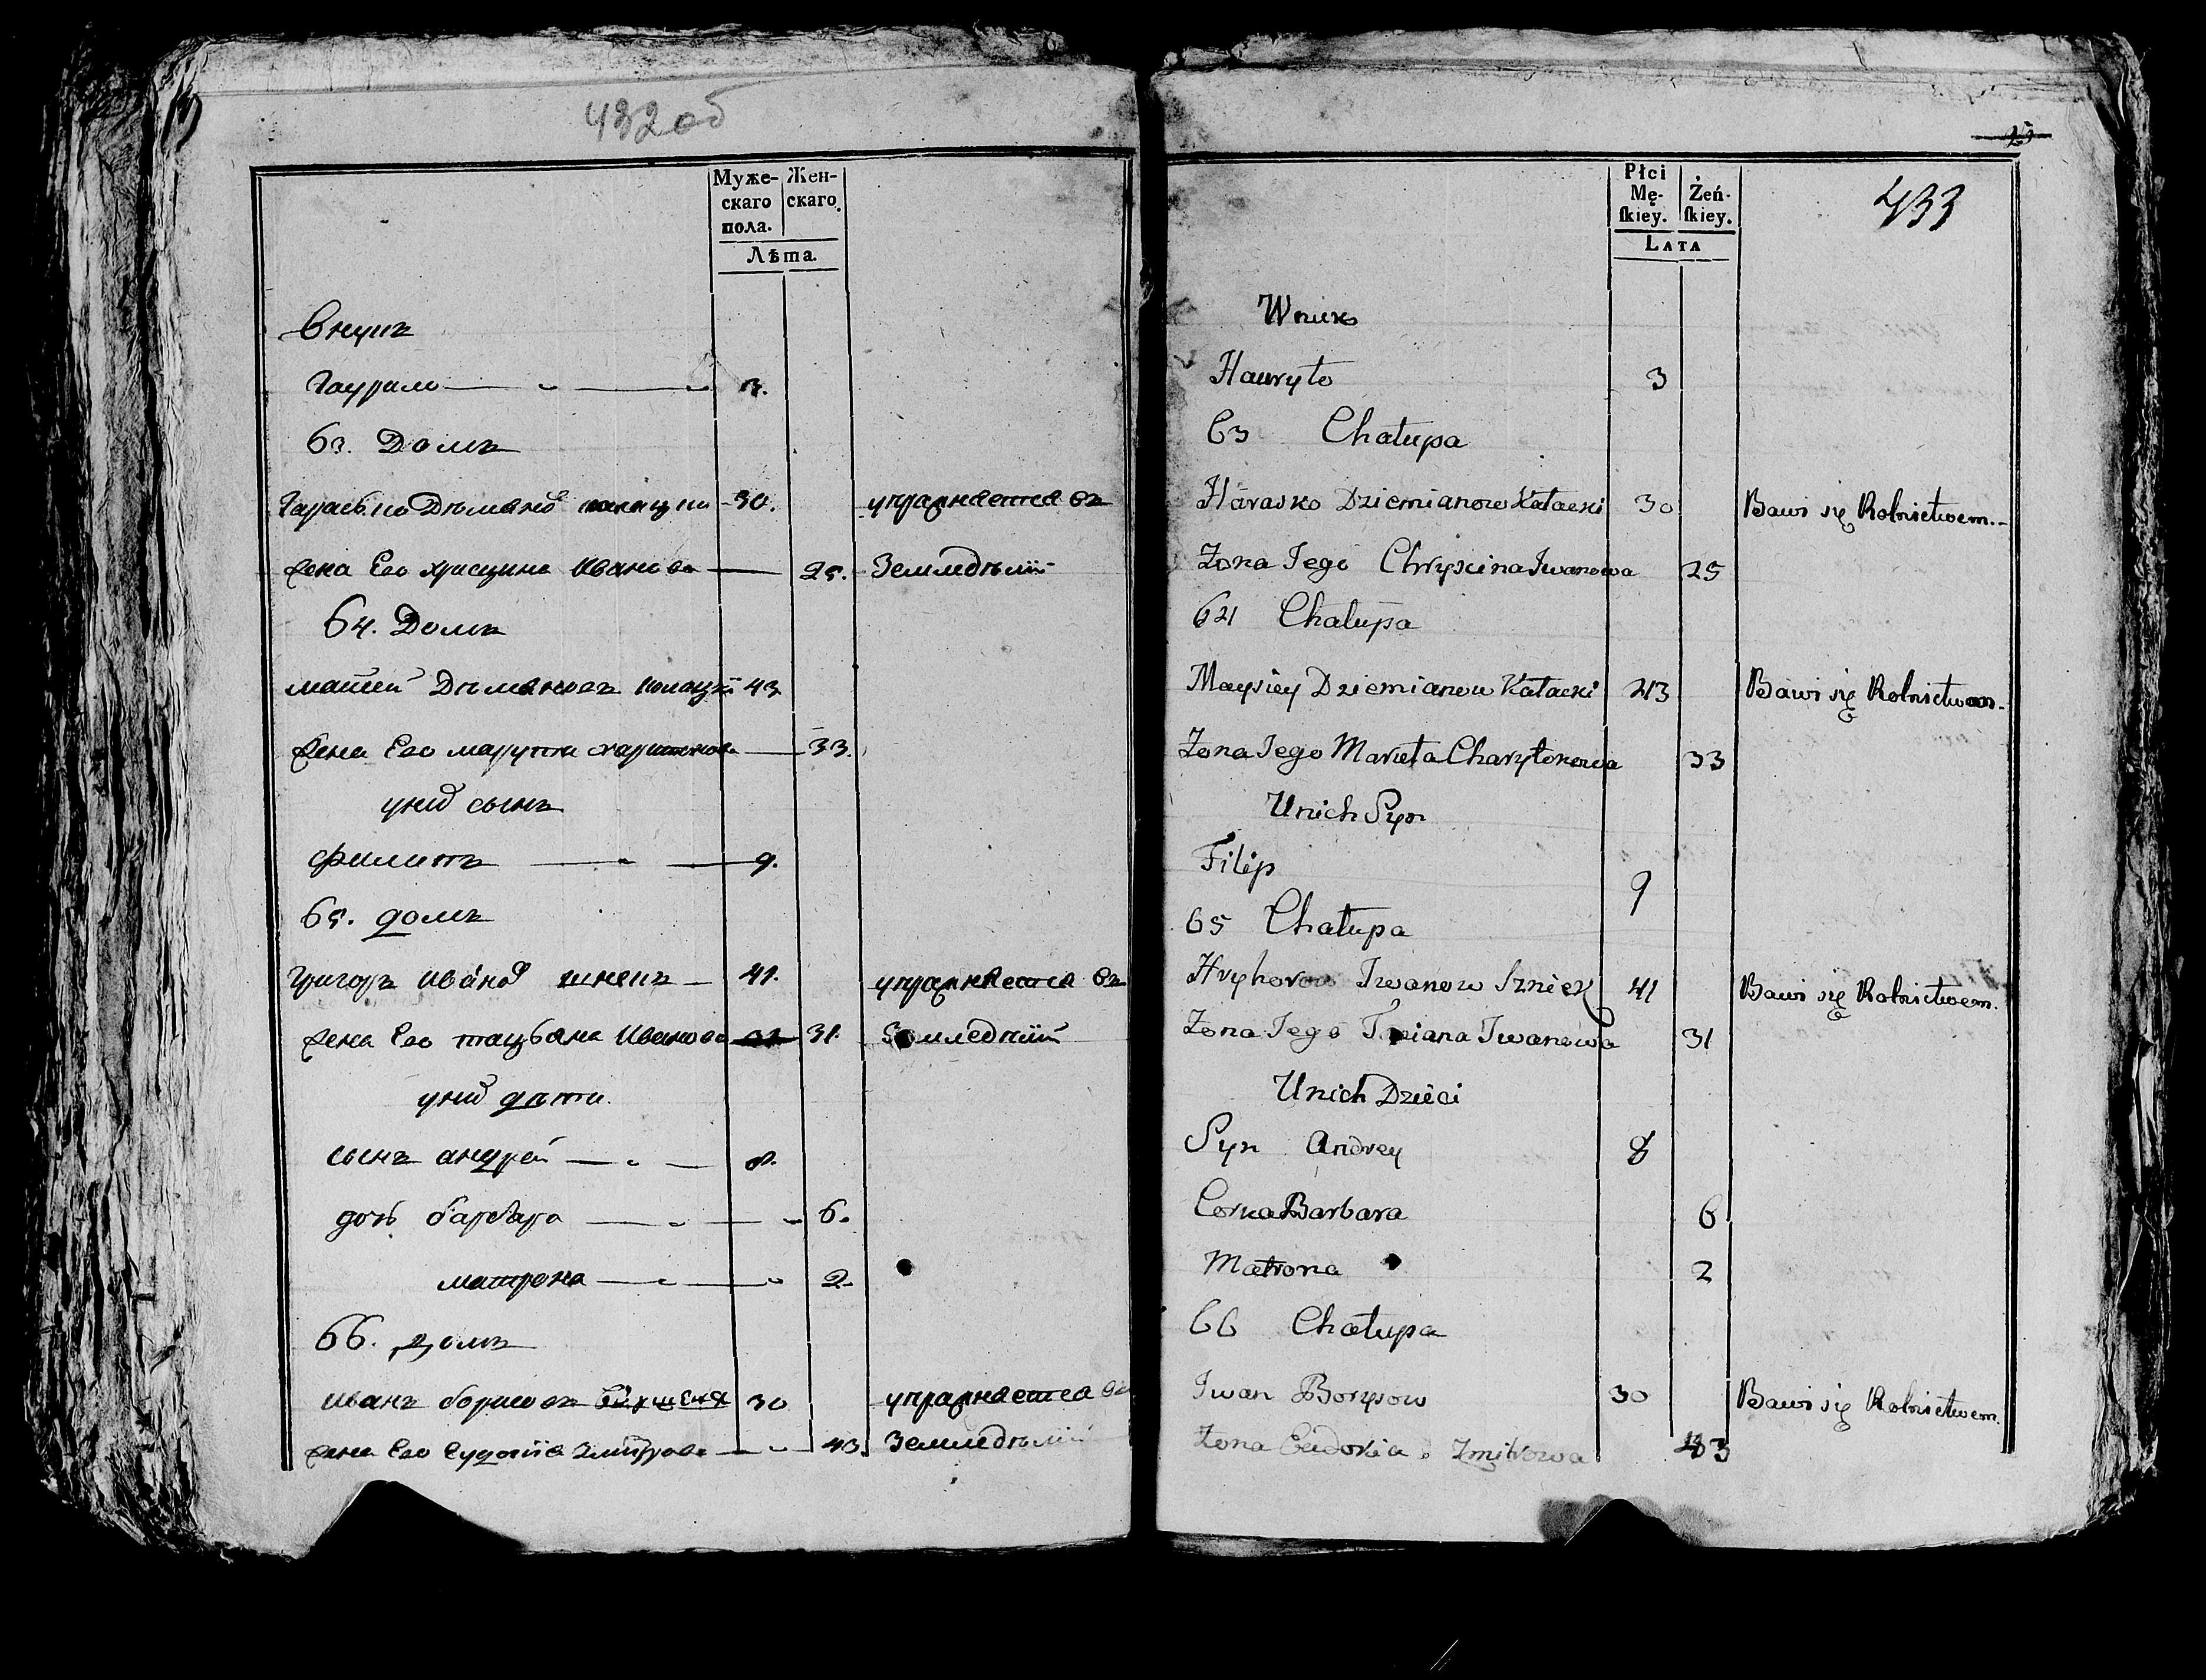 432 об
Муже-
скаго
пола.
Жен-
скаго.
Лѣта.
Внукъ
Гаурило 3.
63. Домъ
Гараська Дѣмянов 30. упражняется въ
жена Его хрысцина Иванова 25. Земледѣлій
64. Домъ
Дѣмяновъ 43
жена Его марута харитонова 33.
уних сынъ
филипъ 9.
65. домъ
григоръ Иванов шнекъ 41. упражняется въ
жена Его тацьяна Иванова 31. Земледѣлій
уних дѣти.
сынъ андрей 8.
дочь барбара 6.
матрона 2.
66. домъ
Иванъ борисовъ 30 упражняется въ
жена Его Еудокія Змитрова 43. Земледѣлій
25
433
Płci
Mę-
ſkiey.
Żeń-
ſkiey.
Lata
Wnuk
Hauryło 3
63 Chałupa
Harasko Dziemianow Kałacki 30 Bawi się Rolnictwem.
Żona Jego Chryscina Iwanowa 25
64 Chalupa
Maysiey Dziemianow Kałacki 43 Bawi się Rolnictwem.
Żona Jego Maruta Charytonowa 33
Unich Syn
Filip 9
65 Chałupa
Iwanow Szniek 41 Bawi się Rolnictwem.
Żona Jego Iwanowa 31
Unich Dzieci
Syn Andrey 8
Corka Barbara 6
Matrona 2
66 Chałupa
Iwan Borysow 30 Bawi się Rolnictwem.
Żona Eudokia Zmitrowa 43